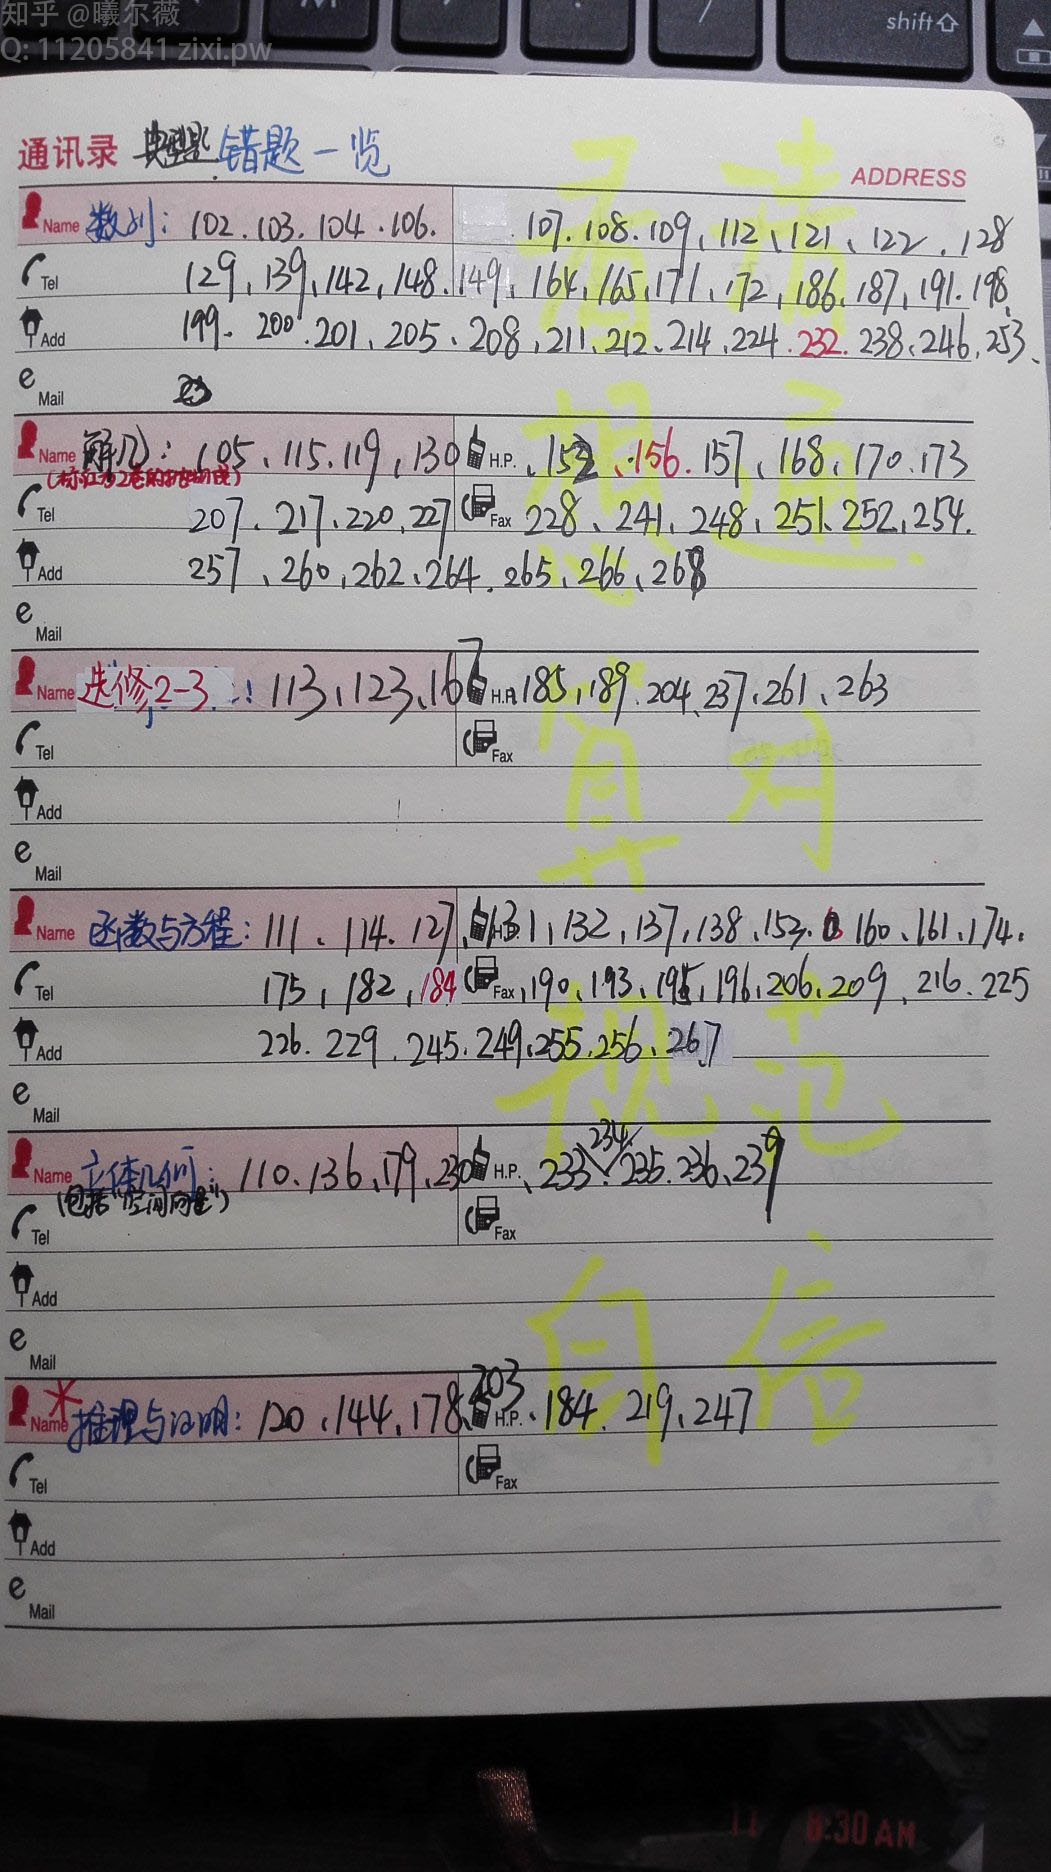 知乎 @曦尔薇
Q: 11205841 zixi.pw
shift
通讯录 典型题 错题一览
ADDRESS
Name 数列: 102.103.104.106. 107.108.109、112、121、122.128
Tel 129,139,142,148.149,164,165,171,172,186,187,191.198
Add 199.200.201、205、208,211、212、214.224.232.238、246,253、
e Mail
Name 解几: 105、115.119,130 H.P. 、152、156.157、168、170.173
Tel 207、217、220,227 Fax 228、241、248、251、252、254.
Add 257、260,262、264.265、266、268
e Mail
Name 选修2-3: 113,123,167 H.P. 185,189.204,237,261、263
Tel Fax
Add
e Mail
Name 函数与方程: 111、114.127, H.P. 131,132,137,138,153.160、161,174.
Tel 175,182,184 Fax ,190,193,195,196,206,209、216.225
Add 226.229.245.249,255.256,267
e Mail
Name 立体几何: 110.136、179,230 H.P. 、233、234、235.236、239
(包括"空间向量")
Tel Fax
Add
e Mail
Name 推理与证明: 120、144,178、203 H.P. 、184.219、247
Tel Fax
Add
e Mail
看清
想通
算对
规范
自信
8:30AM